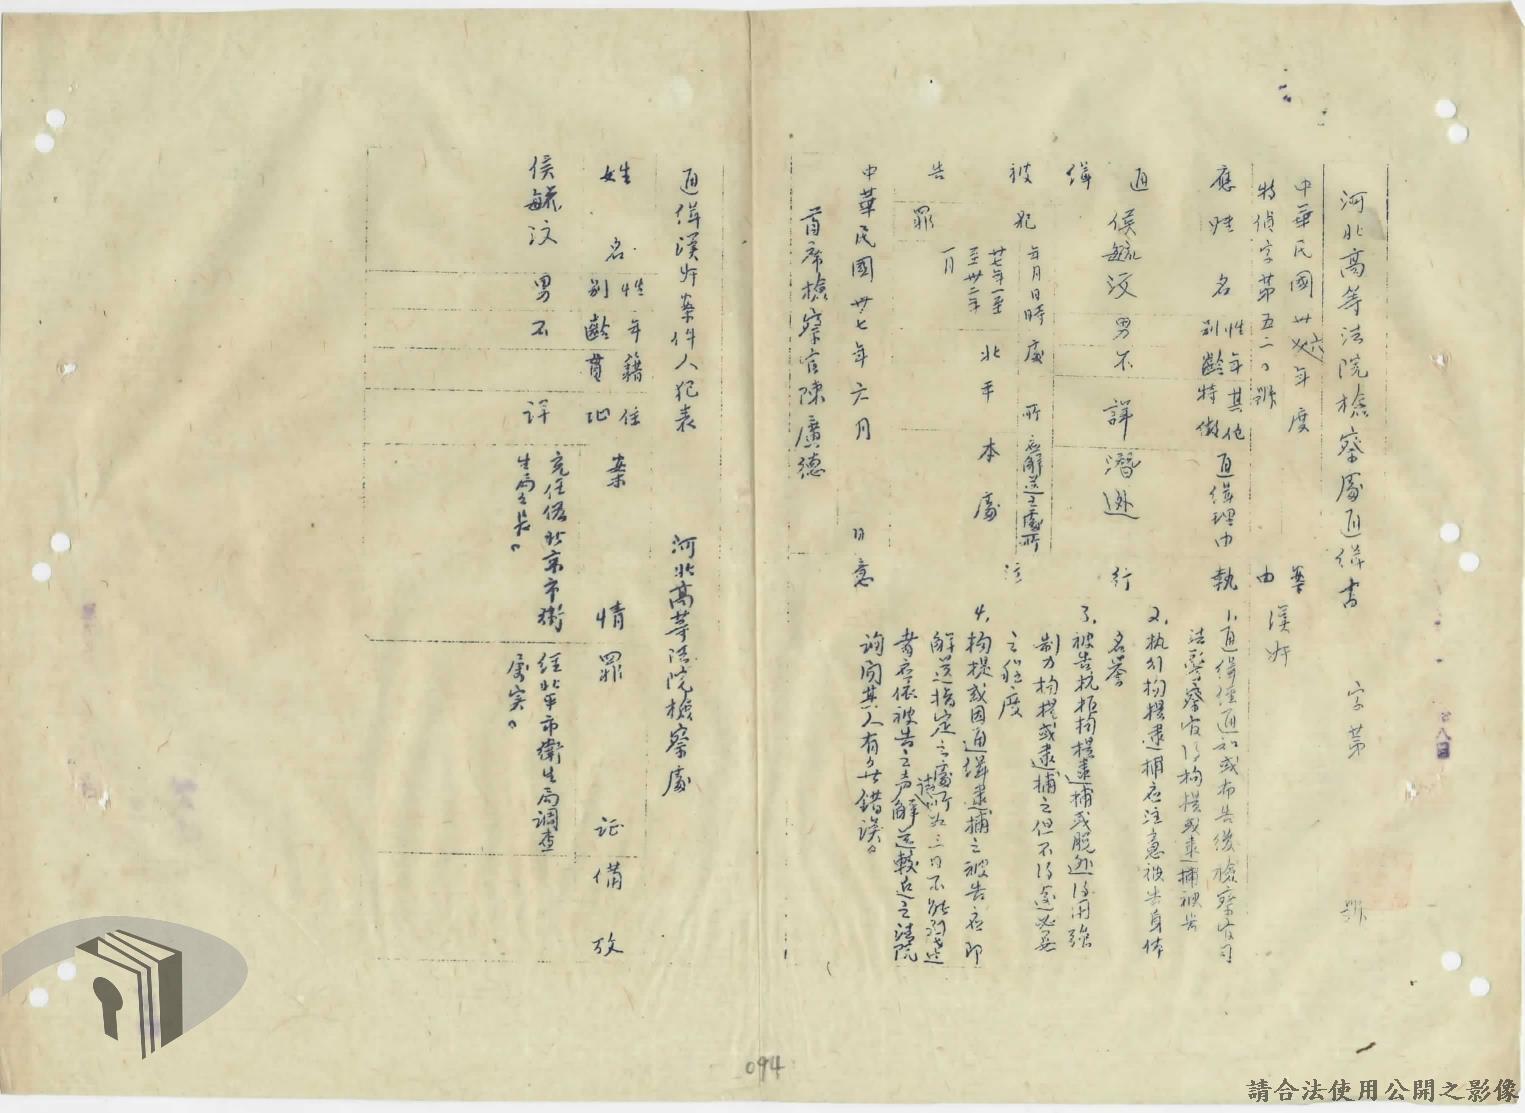 河北高等法院檢察處通緝書　字第　號
中華民國卅六年度
特偵字第五二〇號
案由　漢奸
應通緝被告
姓名　性別　年齡　其他特徵　通緝理由
侯毓汶　男　不詳　潛逃
犯罪
年月日時　處所　應解送之處所
廿七年一至
至卅二年
一月
北平　本處
中華民國卅七年六月　日
首席檢察官陳廣德
執行注意
1、通緝經通知或布告後檢察官司
法警察官得拘提或逮捕被告
2、執行拘提逮捕应注意被告身体
名誉
3、被告抗拒拘提逮捕或脫逃得用強
制力拘提或逮捕之但不得逾必要
之程度
4、拘提或因通緝逮捕之被告应即
解送指定之處所如三日不能到達
者应依被告之声請解送較近之法院
詢问其人有无錯误。
通緝漢奸案件人犯表　河北高等法院檢察處
姓名　性別　年齡　籍貫　住址　案情　罪証　備攷
侯毓汶　男　不　詳
充任偽北京市衛
生局局長。
經北平市衛生局調查
屬实。
094
請合法使用公開之影像